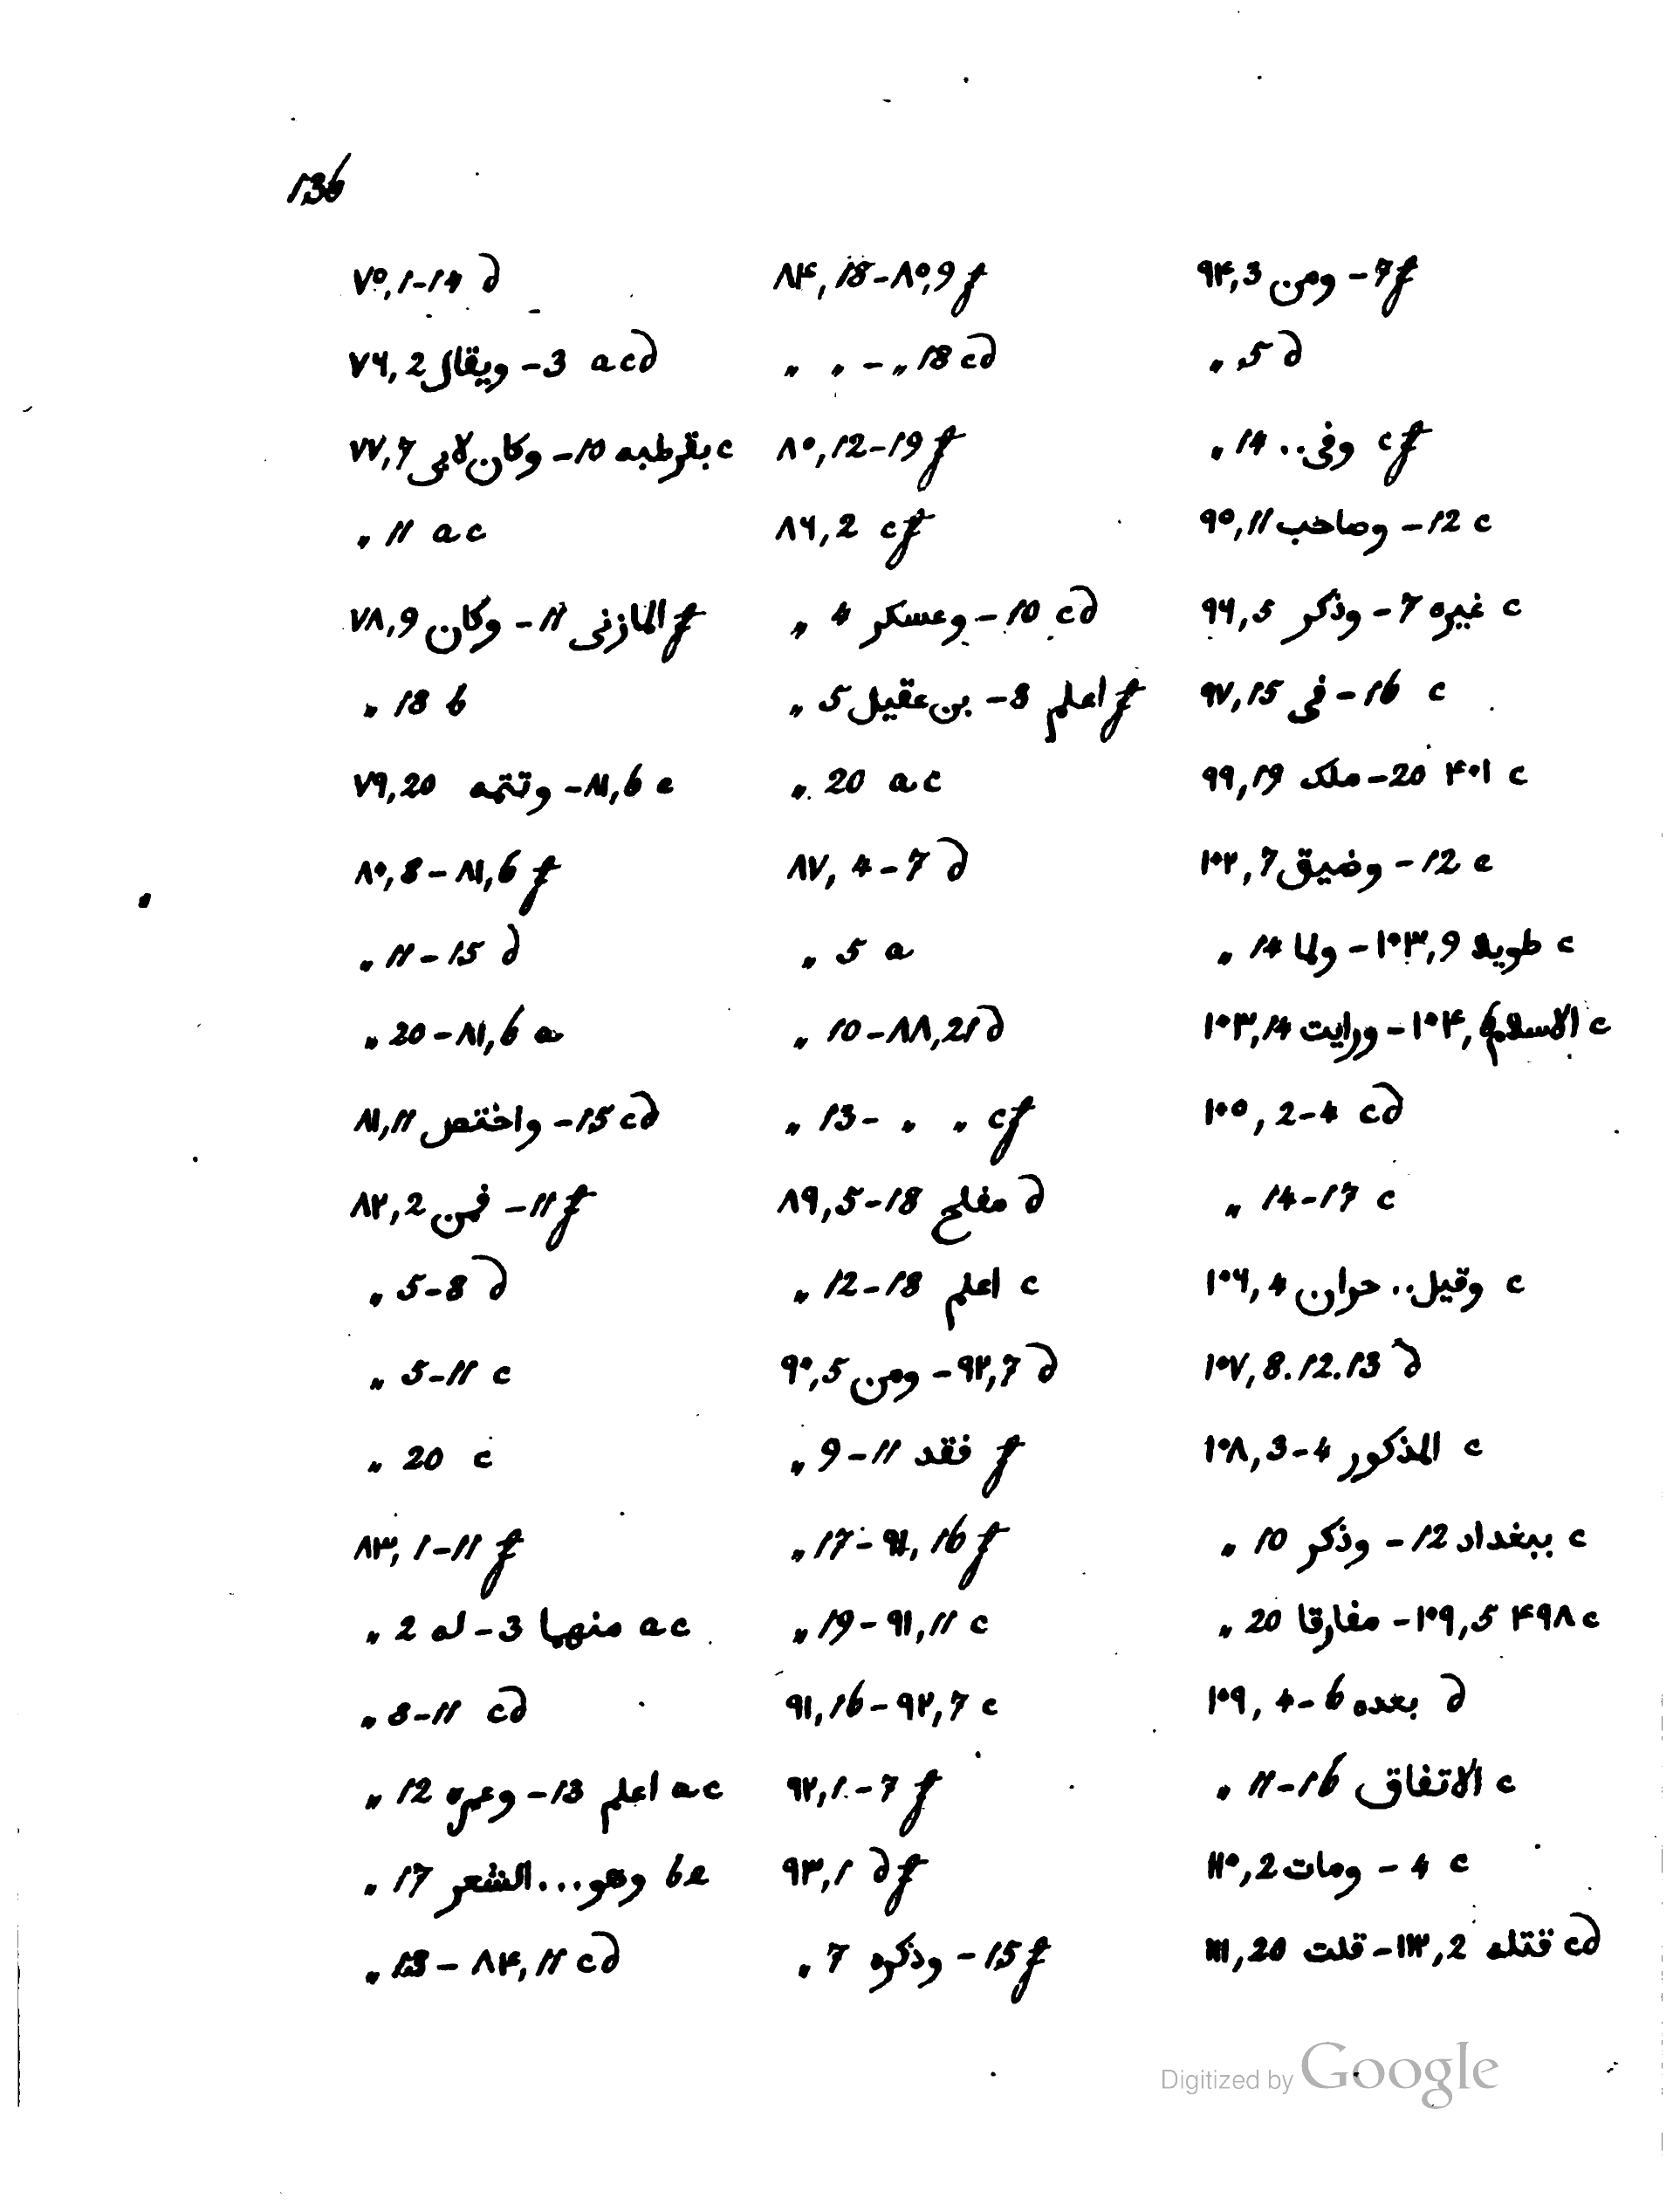 136
٧٥, 1-14 d
٧٦, 2 ويقال - 3 acd
٧٧, 7 وكان لابى - 10 بقرطبه c
„ 11 ac
٧٨, 9 وكان - 11 المازنى f
„ 18 b
٧٩, 20 وتتمه - ٨١, 6 c
٨٠, 8 - ٨١, 6 f
„ 11-15 d
„ 20 - ٨١, 6 a
٨١, 11 واختص - 15 cd
٨٢, 2 فمن - 11 f
„ 5-8 d
„ 5-11 c
„ 20 c
٨٣, 1-11 f
„ 2 له - 3 منهما ac
„ 8-11 cd
„ 12 وعمره - 13 اعلم ac
„ 17 وهو... الشعر be
„ 18 - ٨٤, 11 cd
٨٤, 18 - ٨٥, 9 f
„ „ - „ 18 cd
٨٥, 12-19 f
٨٦, 2 cf
„ 4 وعسكر - 10 cd
„ 5 بن عقيل - 8 اعلم f
„ 20 ac
٨٧, 4-7 d
„ 5 a
„ 10 - ٨٨, 21 d
„ 13 - „ „ cf
٨٩, 5-18 مفلح d
„ 12-18 اعلم c
٩٠, 5 ومن - ٩٢, 7 d
„ 9-11 فقد f
„ 17 - ٩١, 16 f
„ 19 - ٩١, 11 c
٩١, 16 - ٩٢, 7 c
٩٢, 1-7 f
٩٣, 1 df
„ 7 وذكره - 15 f
٩٤, 3 ومن - 7 f
„ 5 d
„ 14 .. وفى cf
٩٥, 11 وصاحب - 12 c
٩٦, 5 وذكر - 7 غيره c
٩٧, 15 فى - 16 c
٩٩, 19 ملك - 20 ۴۰١ c
١٠٢, 7 وضيق - 12 c
„ 14 ولما - ١٠٣, 9 طويلا c
١٠٣, 14 ورايت - ١٠٤, الاسلام c
١٠٥, 2-4 cd
„ 14-17 c
١٠٦, 4 وقيل .. حران c
١٠٧, 8. 12. 13 d
١٠٨, 3-4 المذكور c
„ 10 وذكر - 12 ببغداد c
„ 20 مفارقا - ١٠٩, 5 ۴٩٨ c
١٠٩, 4-6 بعده d
„ 11-16 الاتفاق c
١١٠, 2 ومات - 4 c
١١١, 20 قلت - ١١٢, 2 قتله cd
Digitized by Google